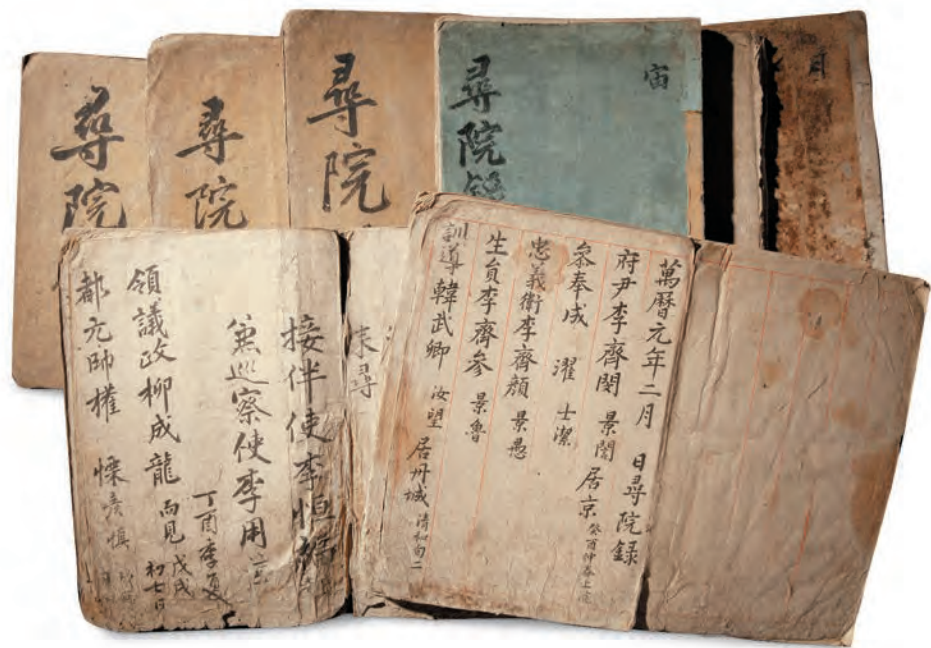 尋院
尋院
尋院
尋院
宙
萬曆元年二月 日尋院録
府尹李齊閔 景誾 居京
叅奉成 濯 士潔
忠義衛李齊顔 景愚
生員李齊參 景魯
訓導韓武卿 汝望 居丹城 清和旬二
来尋
接伴使李恒福
兼巡察使李用
丁酉季夏
領議政柳成龍 而見 戊戌 初七日
都元帥權 慄 彦愼